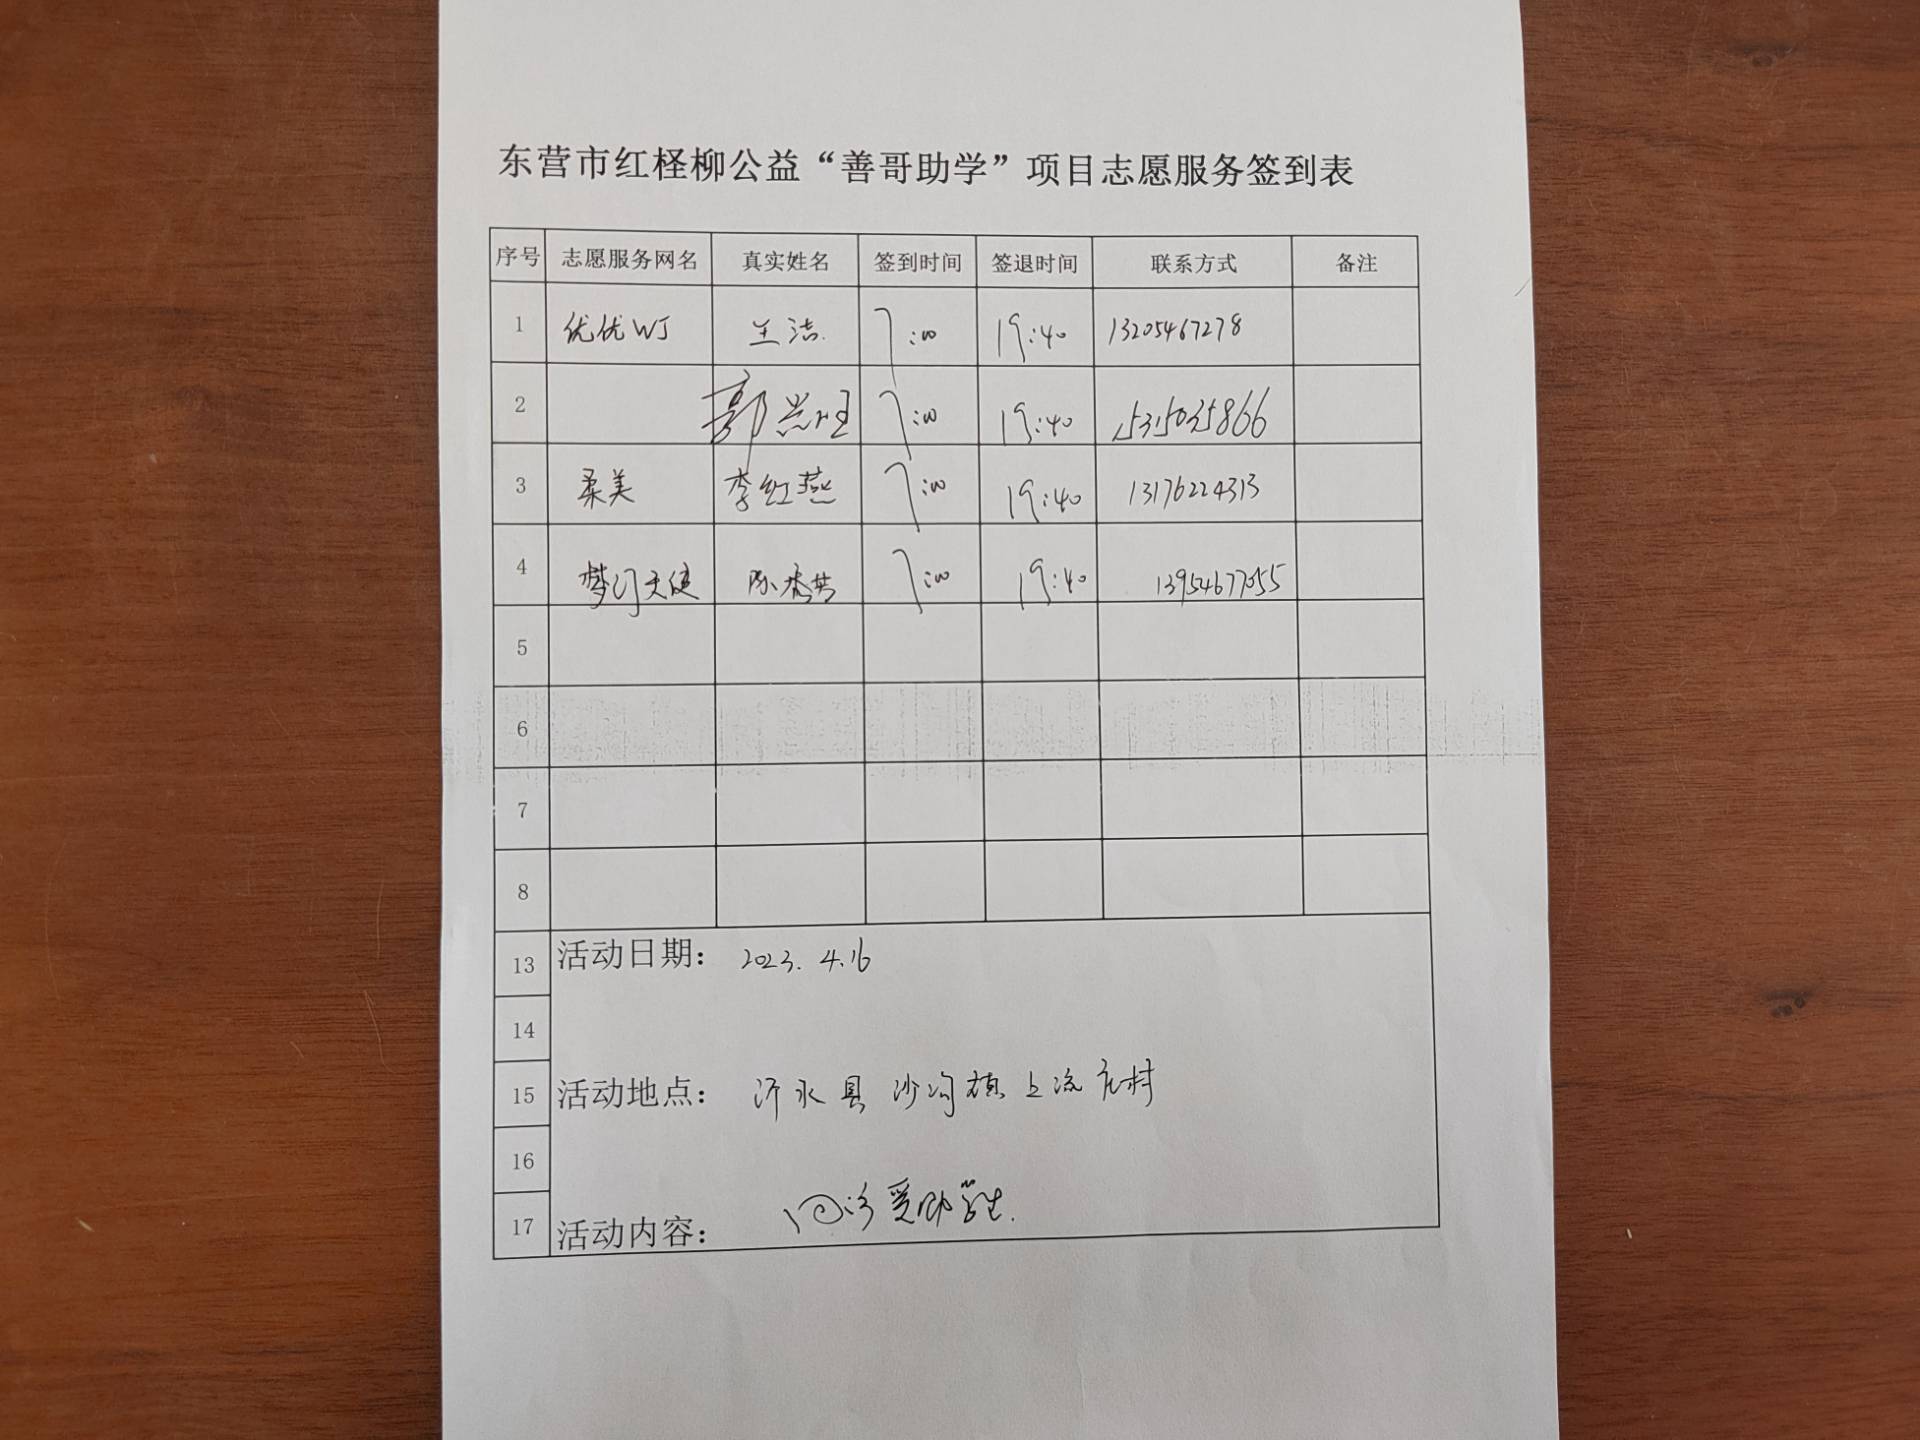 东营市红柽柳公益“善哥助学”项目志愿服务签到表
序号 志愿服务网名 真实姓名 签到时间 签退时间 联系方式 备注
1 优优WJ 王洁 7:00 19:40 13205467278
2 郭兴旺 7:00 19:40 15315035866
3 柔美 李红燕 7:00 19:40 13176224313
4 梦幻天使 陈 7:00 19:40 13954677055
5
6
7
8
13 活动日期： 2023.4.16
14
15 活动地点： 沂水县沙沟镇上流庄村
16
17 活动内容： 回访受助学生.